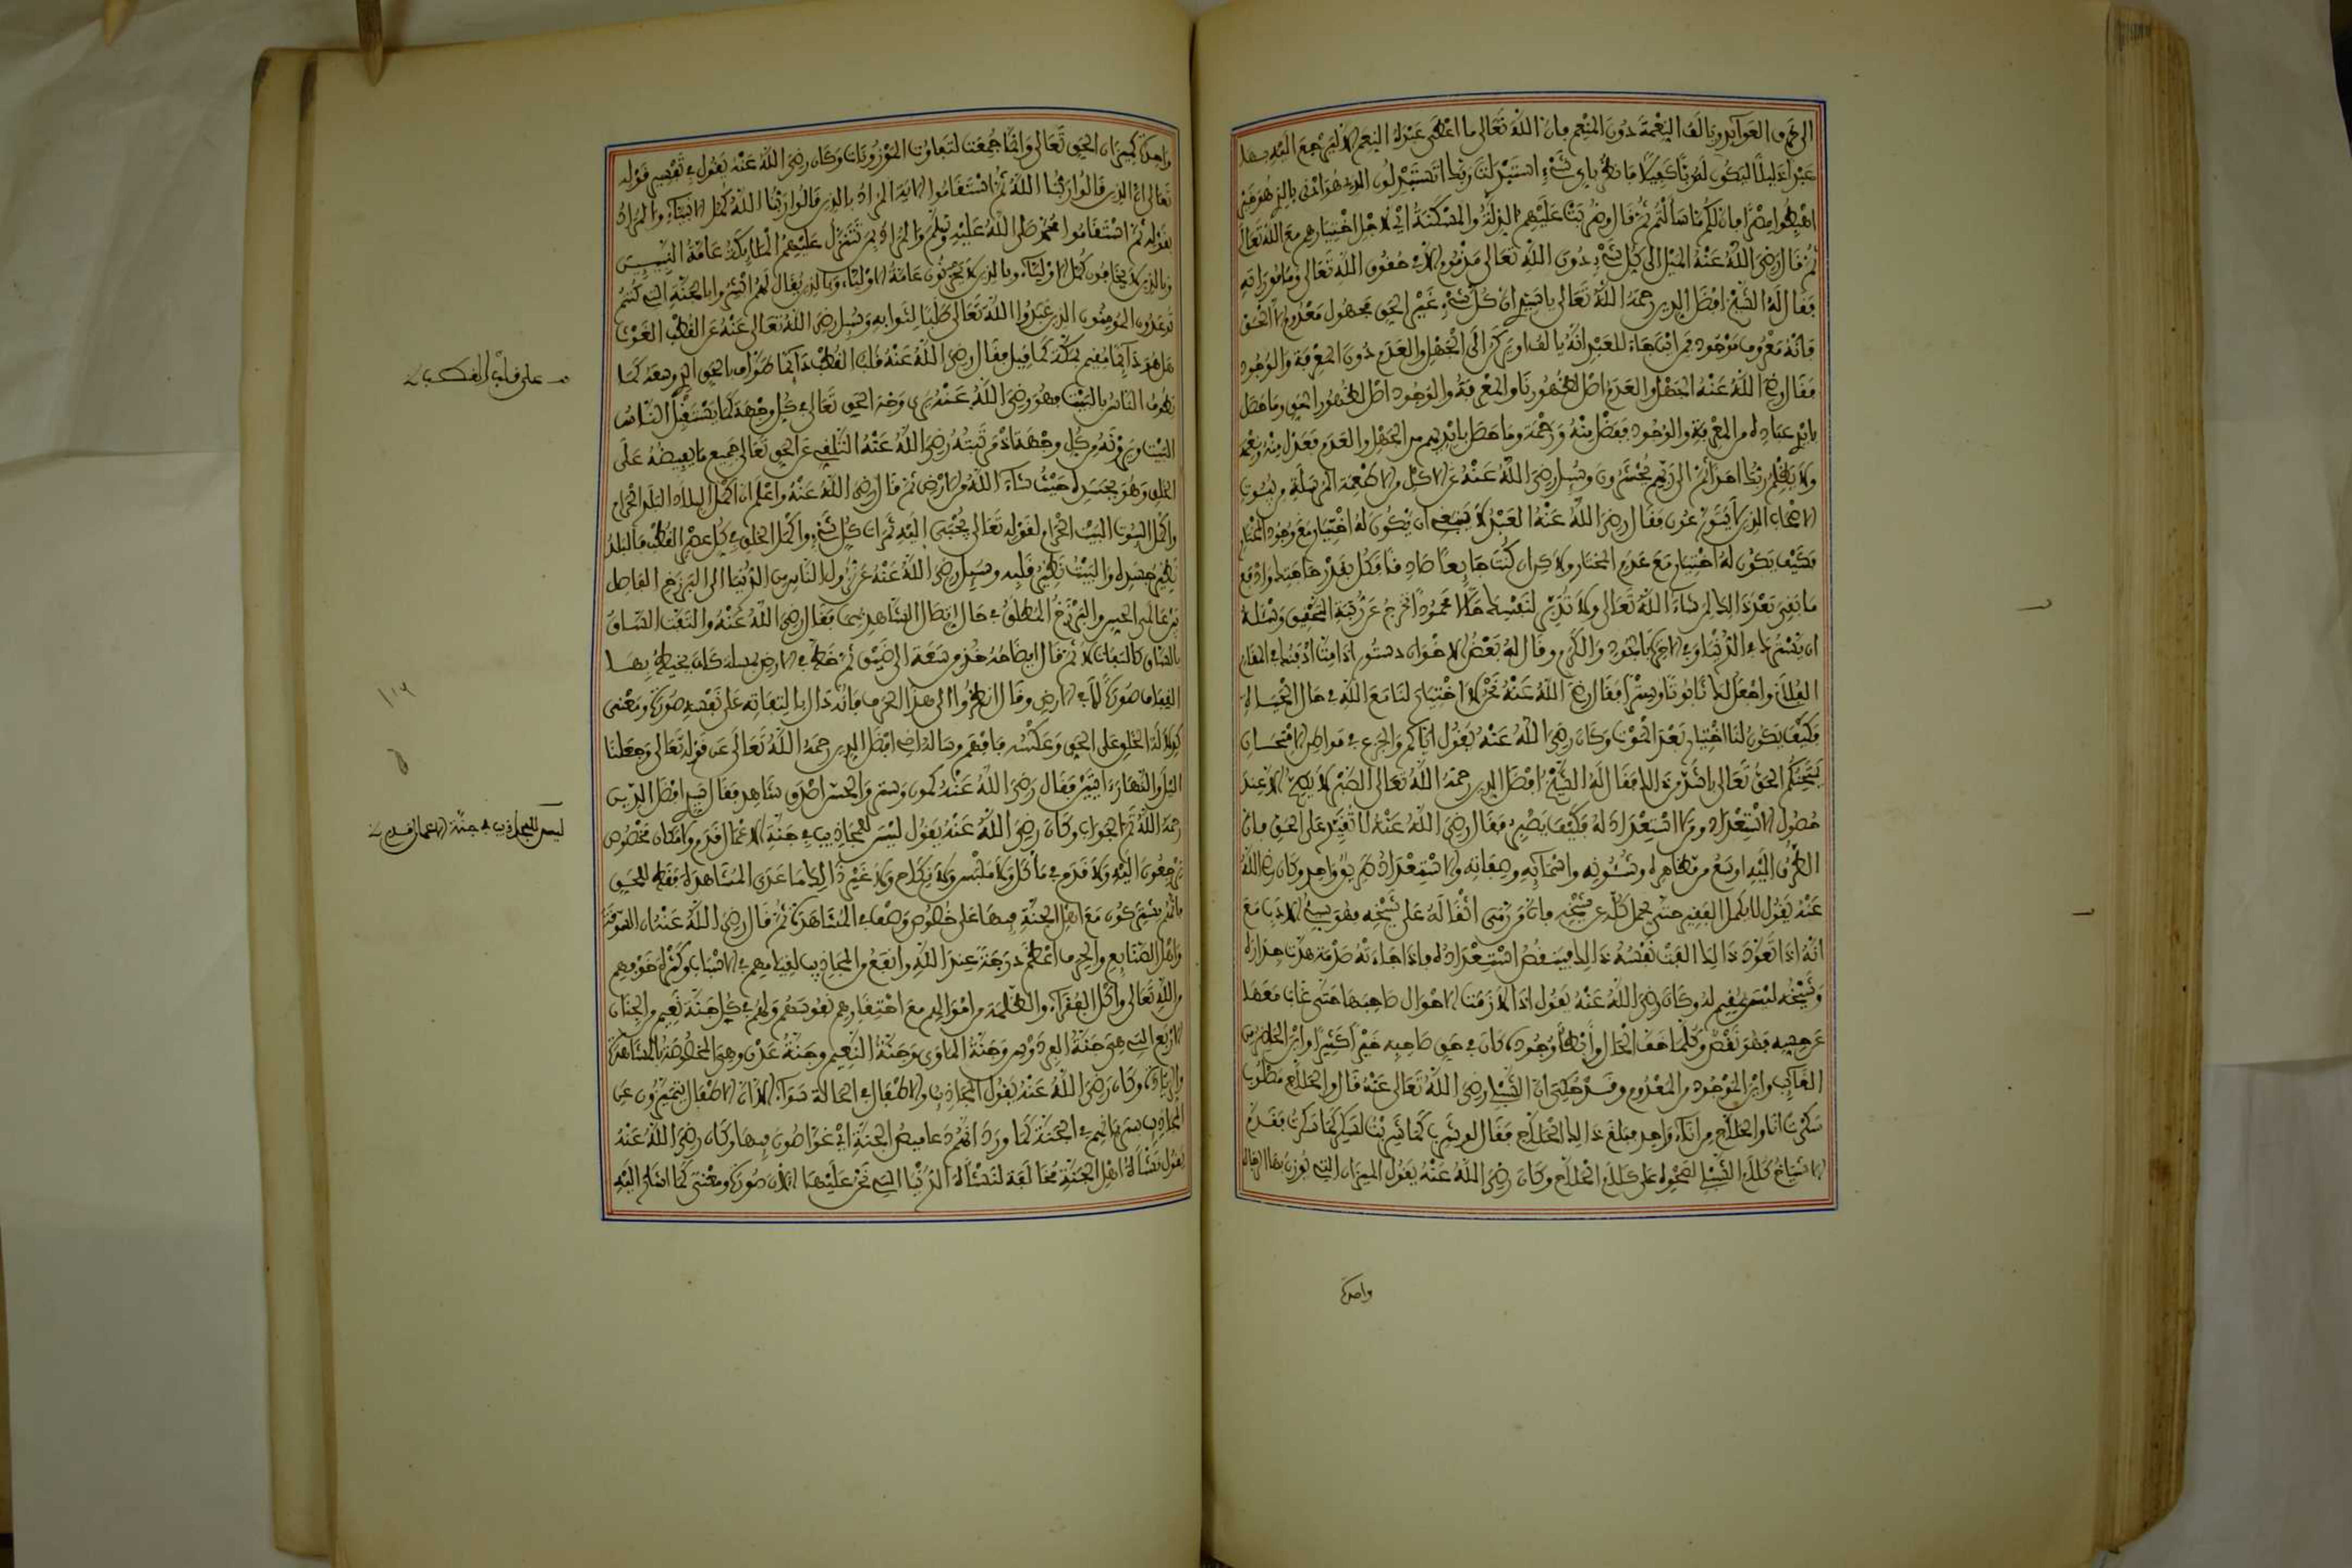 الى خرق العوايد وتالف النعمة دون المنعم فان الله تعالى ما اعطى عبده النعم الا ليرجع اليه بها
عبدا ذليلا ليكون له ربا كفيلا فانظر باى شىء استبدلت ربك اتستبدلون الذى هو ادنى بالذى هو خير
اهبطوا مصرا فان لكم ما سالتم ثم قال وضربت عليهم الذلة والمسكنة اى لاجل اختيارهم مع الله تعالى
ثم قال رضى الله عنه الميل الى كل شىء دون الله تعالى مذموم الا فى حقوق الله تعالى وماموراته
فقال له الشيخ افضل الدين رحمه الله تعالى يا سيدى ان كل شىء غير الحق مجهول معدوم الا الحق
فانه معروف موجود فمن اين جاء للعبد انه يالف او يركن الى الجهل والعدم دون المعرفة والوجود
فقال رضى الله عنه الجهل والعدم اصل لظهورنا والمعرفة والوجود اصل لظهور الحق وما حصل
بايدى عباده من المعرفة والوجود ففضل منه ورحمة وما حصل بايديهم من الجهل والعدم فعدل منه ونعمة
ولا يظلم ربك احدا ثم الى ربهم يحشرون وسئل رضى الله عنه عن الاكل من الاطعمة المرسلة من بيوت
الاصحاب الذين لا يتورعون فقال رضى الله عنه العبد لا ينبغى ان يكون له اختيار مع وجود المختار
فكيف يكون له اختيار مع عدم المختار ولاكن ان كنت جايعا صادقا فكل بقدر حاجتك وادفع
ما بقى بعد ذالك لمن شاء الله تعالى ولا تدبر لنفسك حالا محمودا تخرج عن رتبة التحقيق وسئله
ان يسترك فى الدنيا وفى الاخرى بالجود والكرم وقال له بعض الاخوان دستور اذا متنا ادفنك فى المقام
الفلانى واجعل لك تابوتا وسترا فقال رضى الله عنه نحن لا اختيار لنا مع الله فى حال الحياة
فكيف يكون لنا اختيار بعد الموت وكان رضى الله عنه يقول اياكم والجزع فى مواطن الامتحان
يمتحنكم الحق تعالى باشد من ذالك فقال له الشيخ افضل الدين رحمه الله تعالى الصبر لا يصح الا عند
حصول الاستعداد ومن لا استعداد له فكيف يصبر فقال رضى الله عنه لا تقيد على الحق فان
الطرق اليه اوسع من مظاهره وشئونه واسمايه وصفاته والاستعداد طريق واحد وكان رضى الله
عنه يقول لا يكمل الفقير حتى يحمل كله عن شيخه فان من رمى اثقاله على شيخه فهو سيئ الادب مع
انه اذا تعود ذالك الفت نفسه ذالك فينقص استعداده فاذا جاءته صدمة هدت جداره
وشيخه ليس بمقيم له وكان رضى الله عنه يقول اذا لازمت الاحوال صاحبها حتى غاب معها
عن حسه فهو نقص وكلما خف الحال وابطا وجوده كان فى حق صاحبه خيرا كثيرا واين الحاضر من
الغايب واين الموجود من المعدوم وقد حكى ان الشبلى رضى الله تعالى عنه قال والحلاج مصلوب
سكرت انا والحلاج من اناء واحد فبلغ ذالك الحلاج فقال لو شرب كما شربت لسكر كما سكرت فقدم
الاشياخ كلام الشبلى لصحوه على كلام الحلاج وكان رضى الله عنه يقول الميزان التى يوزن بها الرجال
واحدة
واحدة كميزان الحق تعالى وانما جمعت لتفاوت الموزونات وكان رضى الله عنه يقول فى تفسير قوله
تعالى ان الذين قالوا ربنا الله ثم استقاموا الاية المراد بالذين قالوا ربنا الله كمل الانبياء والمراد
بقوله ثم استقاموا محمد صلى الله عليه وسلم والمراد بمن تتنزل عليهم الملايكة عامة النبييين
وبالذين لا يخافون كمل الاولياء وبالذين لا يحزنون عامة الاولياء وبالذين يقال لهم ابشروا بالجنة التى كنتم
توعدون المومنون الذين عبدوا الله تعالى طلبا لثوابه وسئل رضى الله تعالى عنه عن القطب الغوث
هل هو دايما مقيم بمكة كما قيل فقال رضى الله عنه قلب القطب دايما طواف بالحق الذى وسعه كما
يطوف الناس بالبيت فهو رضى الله عنه يرى وجه الحق تعالى فى كل وجهة كما يستقبل الناس
البيت ويرونه من كل وجهة اذ مرتبته رضى الله عنه التلقى عن الحق تعالى جميع ما يفيضه على
الخلق وهو بجسده حيث شاء الله من الارض ثم قال رضى الله عنه واعلم ان اكمل البلاد البلد الحرام
واكمل البيوت البيت الحرام لقوله تعالى يجبى اليه ثمرات كل شىء واكمل الخلق فى كل عصر القطب فالبلد
نظير جسده والبيت نظير قلبه وسئل رضى الله عنه عن
بين عالمى الحس والبرزخ المطلق فى حال فقال رضى الله عنه والتفت الساق
بالساق
الفقهاء صورة لام فى الارض وقال انظروا الى هذا الحرف فانه دال بالتفاته على نفسه صورة ومعنى
الخلق على الحق وعكسه فافهم وساله اخى افضل الدين رحمه الله تعالى عن قوله تعالى وجعلنا
اليل والنهار ءايتين فقال رضى الله عنه كمون والحس اصدق شاهد فقال سيدى افضل الدين
رحمه الله الجواب وكان رضى الله عنه يقول ليس للمجاذيب فى جنة الاعمال قدم ولا مكان مخصوص
يرجعون اليه ولا قدم فى ماكل ولا ملبس ولا نكاح ولا غير ذالك ما عدى المشاهدة فقط للحق
فانهم يشتركون مع اهل الجنة فيها على خصوص وصف المشاهدة ثم قال رضى الله عنه ان السوقة
واهل الصنايع والحرف اعظم درجة عند الله وانفع من المجاذيب لقيامهم فى الاسباب وكثرة خوفهم
من الله تعالى واكل الفقراء والظلمة من اموالهم مع احتقارهم نفوسهم ولهم فى كل جنة نعيم والجنان
الاربع التى هى جنة الفردوس وجنة الماوى وجنة النعيم وجنة عدن وهى المخصوصة بالمشاهدة
والزيادة وكان رضى الله عنه يقول المجاذيب والاطفال فى الحالة سواء الا ان الاطفال يتميزون عن
المجاذيب بسريانهم فى الجنة كما ورد انهم دعاميص الجنة اى غواصون فيها وكان رضى الله عنه
يقول نشاة اهل الجنة مخالفة لنشاة الدنيا التى نحن عليها الان صورة ومعنى كما اشار اليه
على قلب القطب
ليس للمجاذيب فى جنة الاعمال قدم